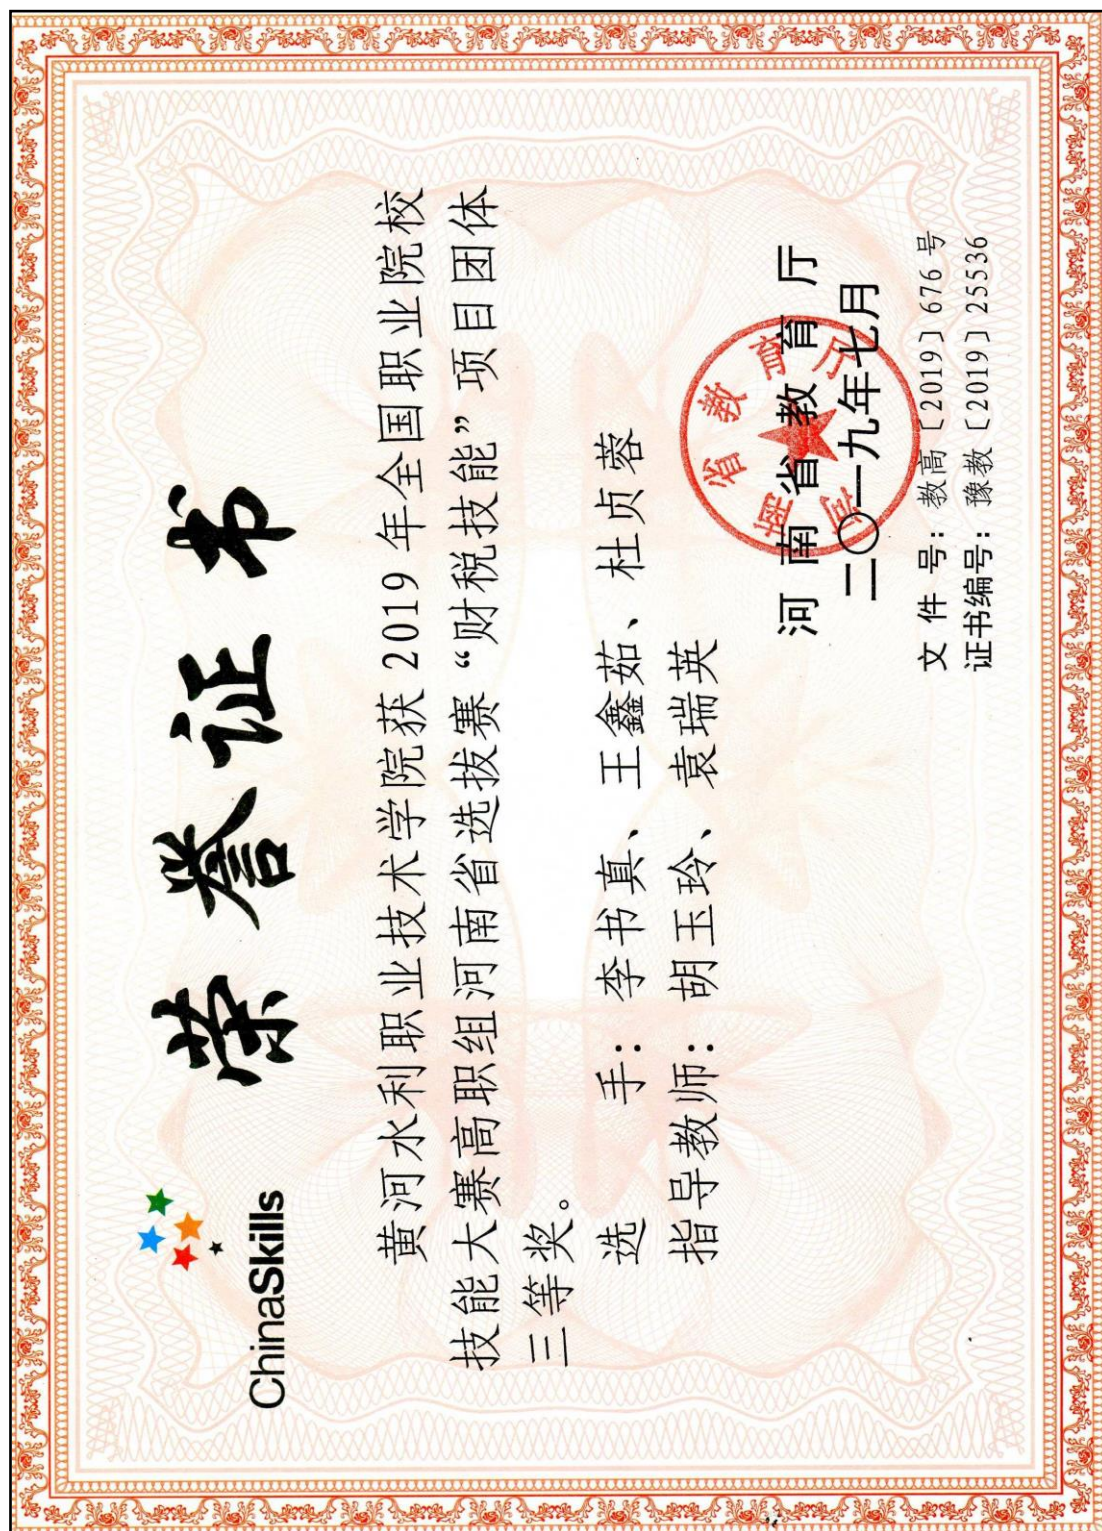 ChinaSkills
荣誉证书
黄河水利职业技术学院获 2019 年全国职业院校
技能大赛高职组河南省选拔赛“财税技能”项目团体
三等奖。
选 手：李书真、王鑫茹、杜贞蓉
指导教师：胡玉玲、袁瑞英
河南省教育厅
河南省教育厅
二〇一九年七月
文 件 号：教高〔2019〕676 号
证书编号：豫教〔2019〕25536